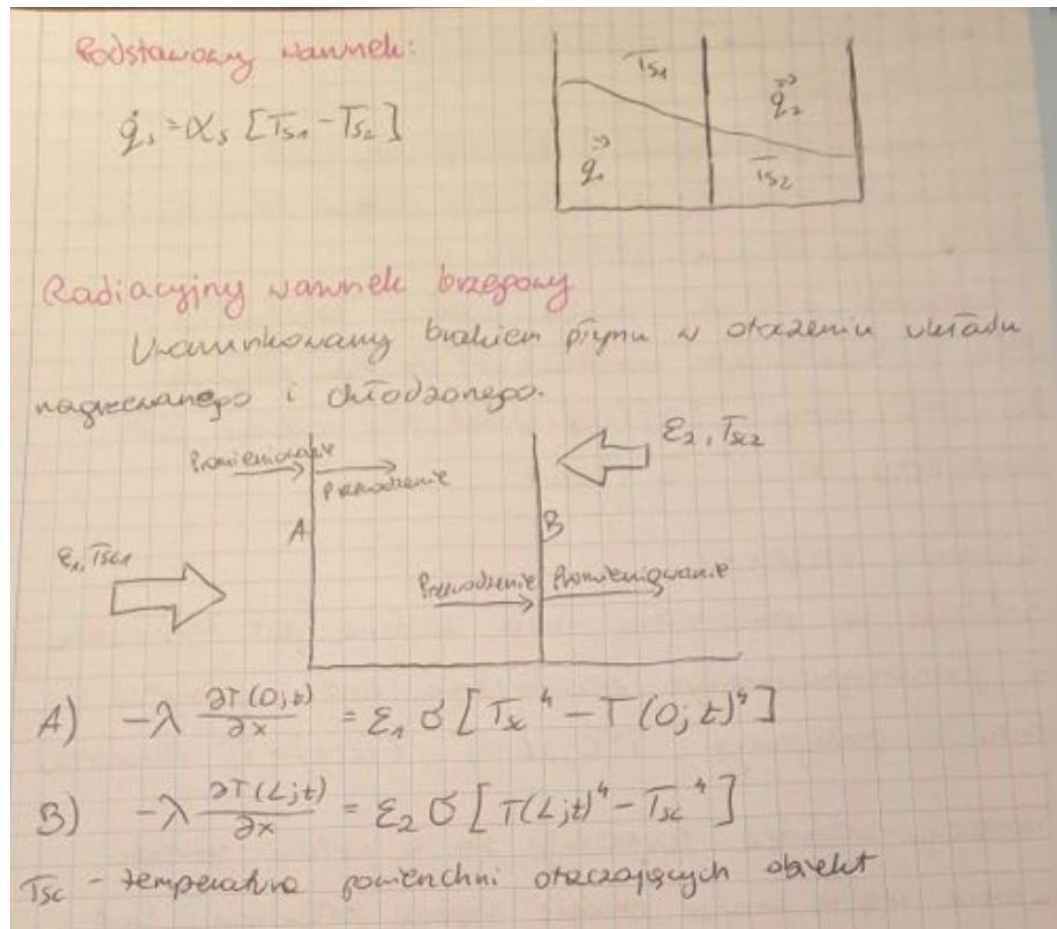 Podstawowy warunek:
q̇s = αs [Ts1 - Ts2]
Ts1
q⃗2
q⃗1
Ts2
Radiacyjny warunek brzegowy
Uwarunkowany brakiem płynu w otoczeniu układu
nagrzewanego i chłodzonego.
Promieniowanie
Przewodzenie
ε2, Tsc2
A
B
ε1, Tsc1
Przewodzenie
Promieniowanie
A) -λ ∂T(0;t)/∂x = ε1 σ [Tsc⁴ - T(0;t)⁴]
B) -λ ∂T(L;t)/∂x = ε2 σ [T(L;t)⁴ - Tsc⁴]
Tsc - temperatura powierzchni otaczających obiekt